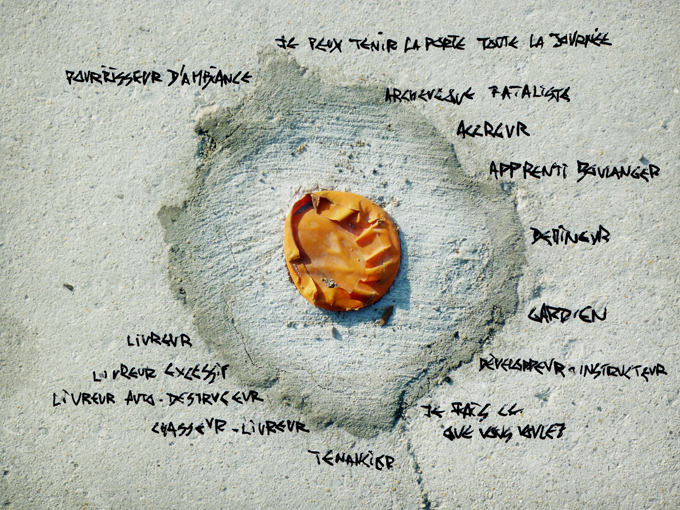 JE PEUX TENIR LA PORTE TOUTE LA JOURNÉE
POURRISSEUR D'AMBIANCE
ARCHEVÊQUE FATALISTE
AGGREUR
APPRENTI BOULANGER
DEMINEUR
GARDIEN
DÉVELOPPEUR-INSTRUCTEUR
JE FAIS CE
QUE VOUS VOULEZ
LIVREUR
LIVREUR EXCESSIF
LIVREUR AUTO-DESTRUCTEUR
CHASSEUR-LIVREUR
TENANCIER